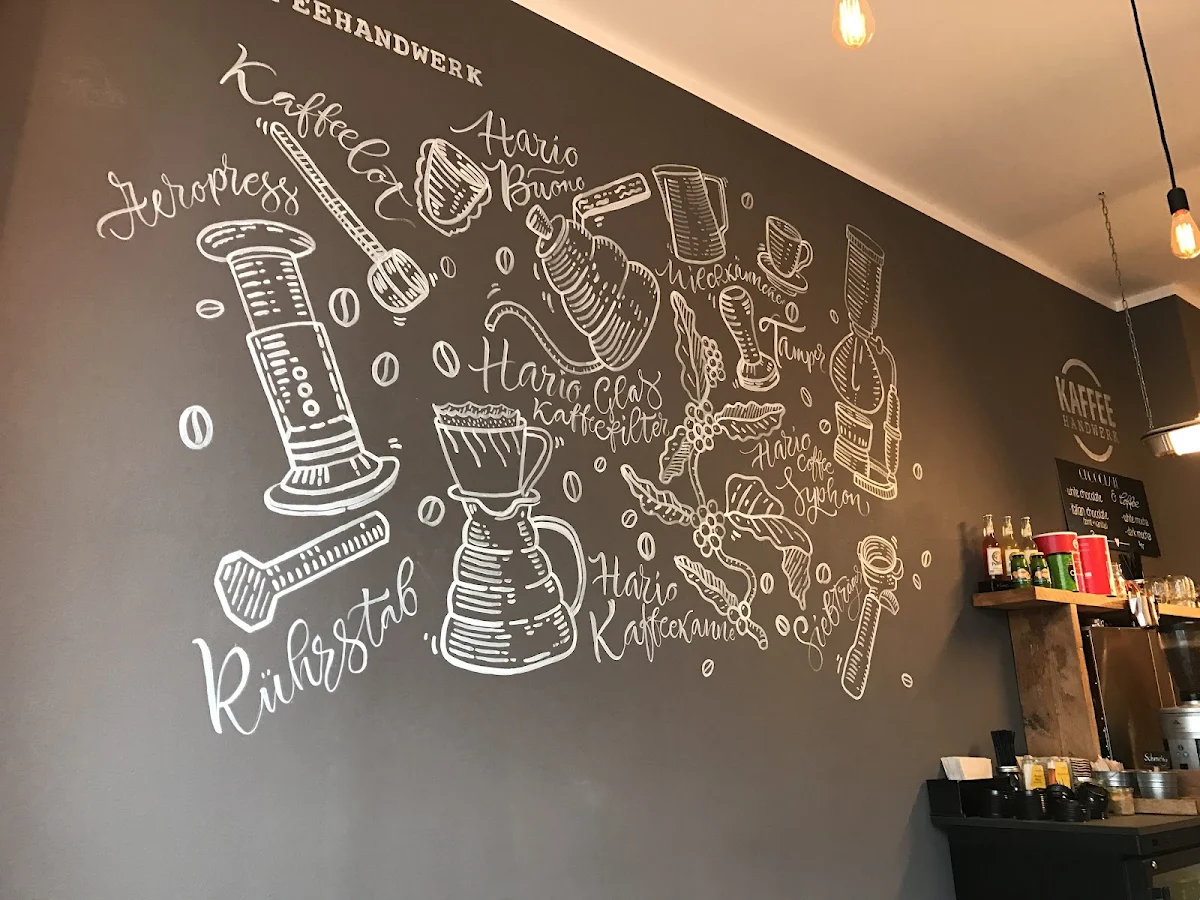 FEEHANDWERK
Kaffeelot
Aeropress
Hario
Buono
Milchkännchen
Tamper
Hario Glas
Kaffeefilter
Hario
Coffee
Syphon
Hario
Kaffeekanne
Siebträger
Rührstab
KAFFEE
HANDWERK
white chocolate
italian chocolate
& Coffee
-white mocha
-dark mocha